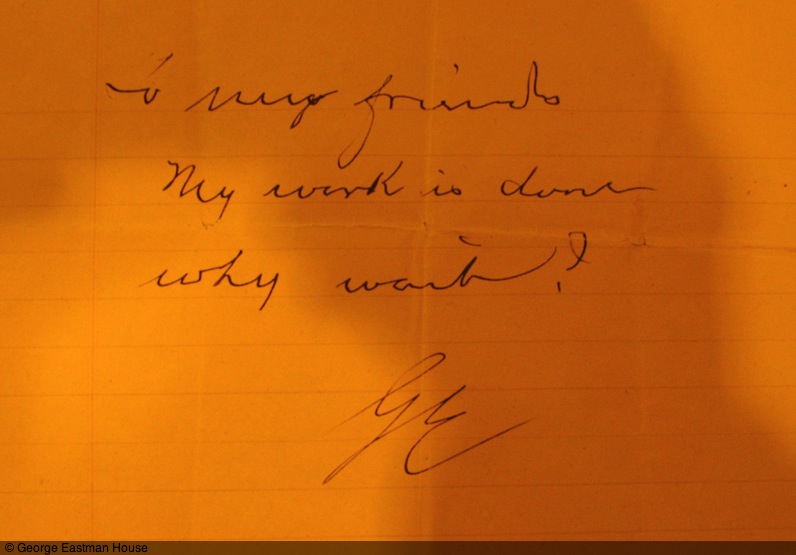 to my friends
My work is done
why wait?
GE
© George Eastman House